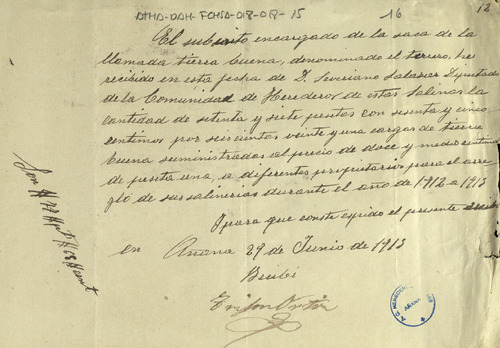 ATHA-DAH-FCHSA-018-018-15
16
12
El subscrito encargado de la saca de la
llamada tierra buena, denominado el tercero, he
recibido en esta fecha de D. Severiano Salazar Diputado
de la Comunidad de Herederos de estas Salinas la
cantidad de setenta y siete pesetas con sesenta y cinco
centimos por seiscientas veinte y una cargas de tierra
buena suministradas al precio de doce y medio centimos
de peseta una, a diferentes propietarios para el arre
glo de sus salinerias durante el año de 1912 a 1913
Y para que conste expido el presente
en Añana 29 de Junio de 1913
Recibí
Ortiz
Son # 77 #
AÑANA